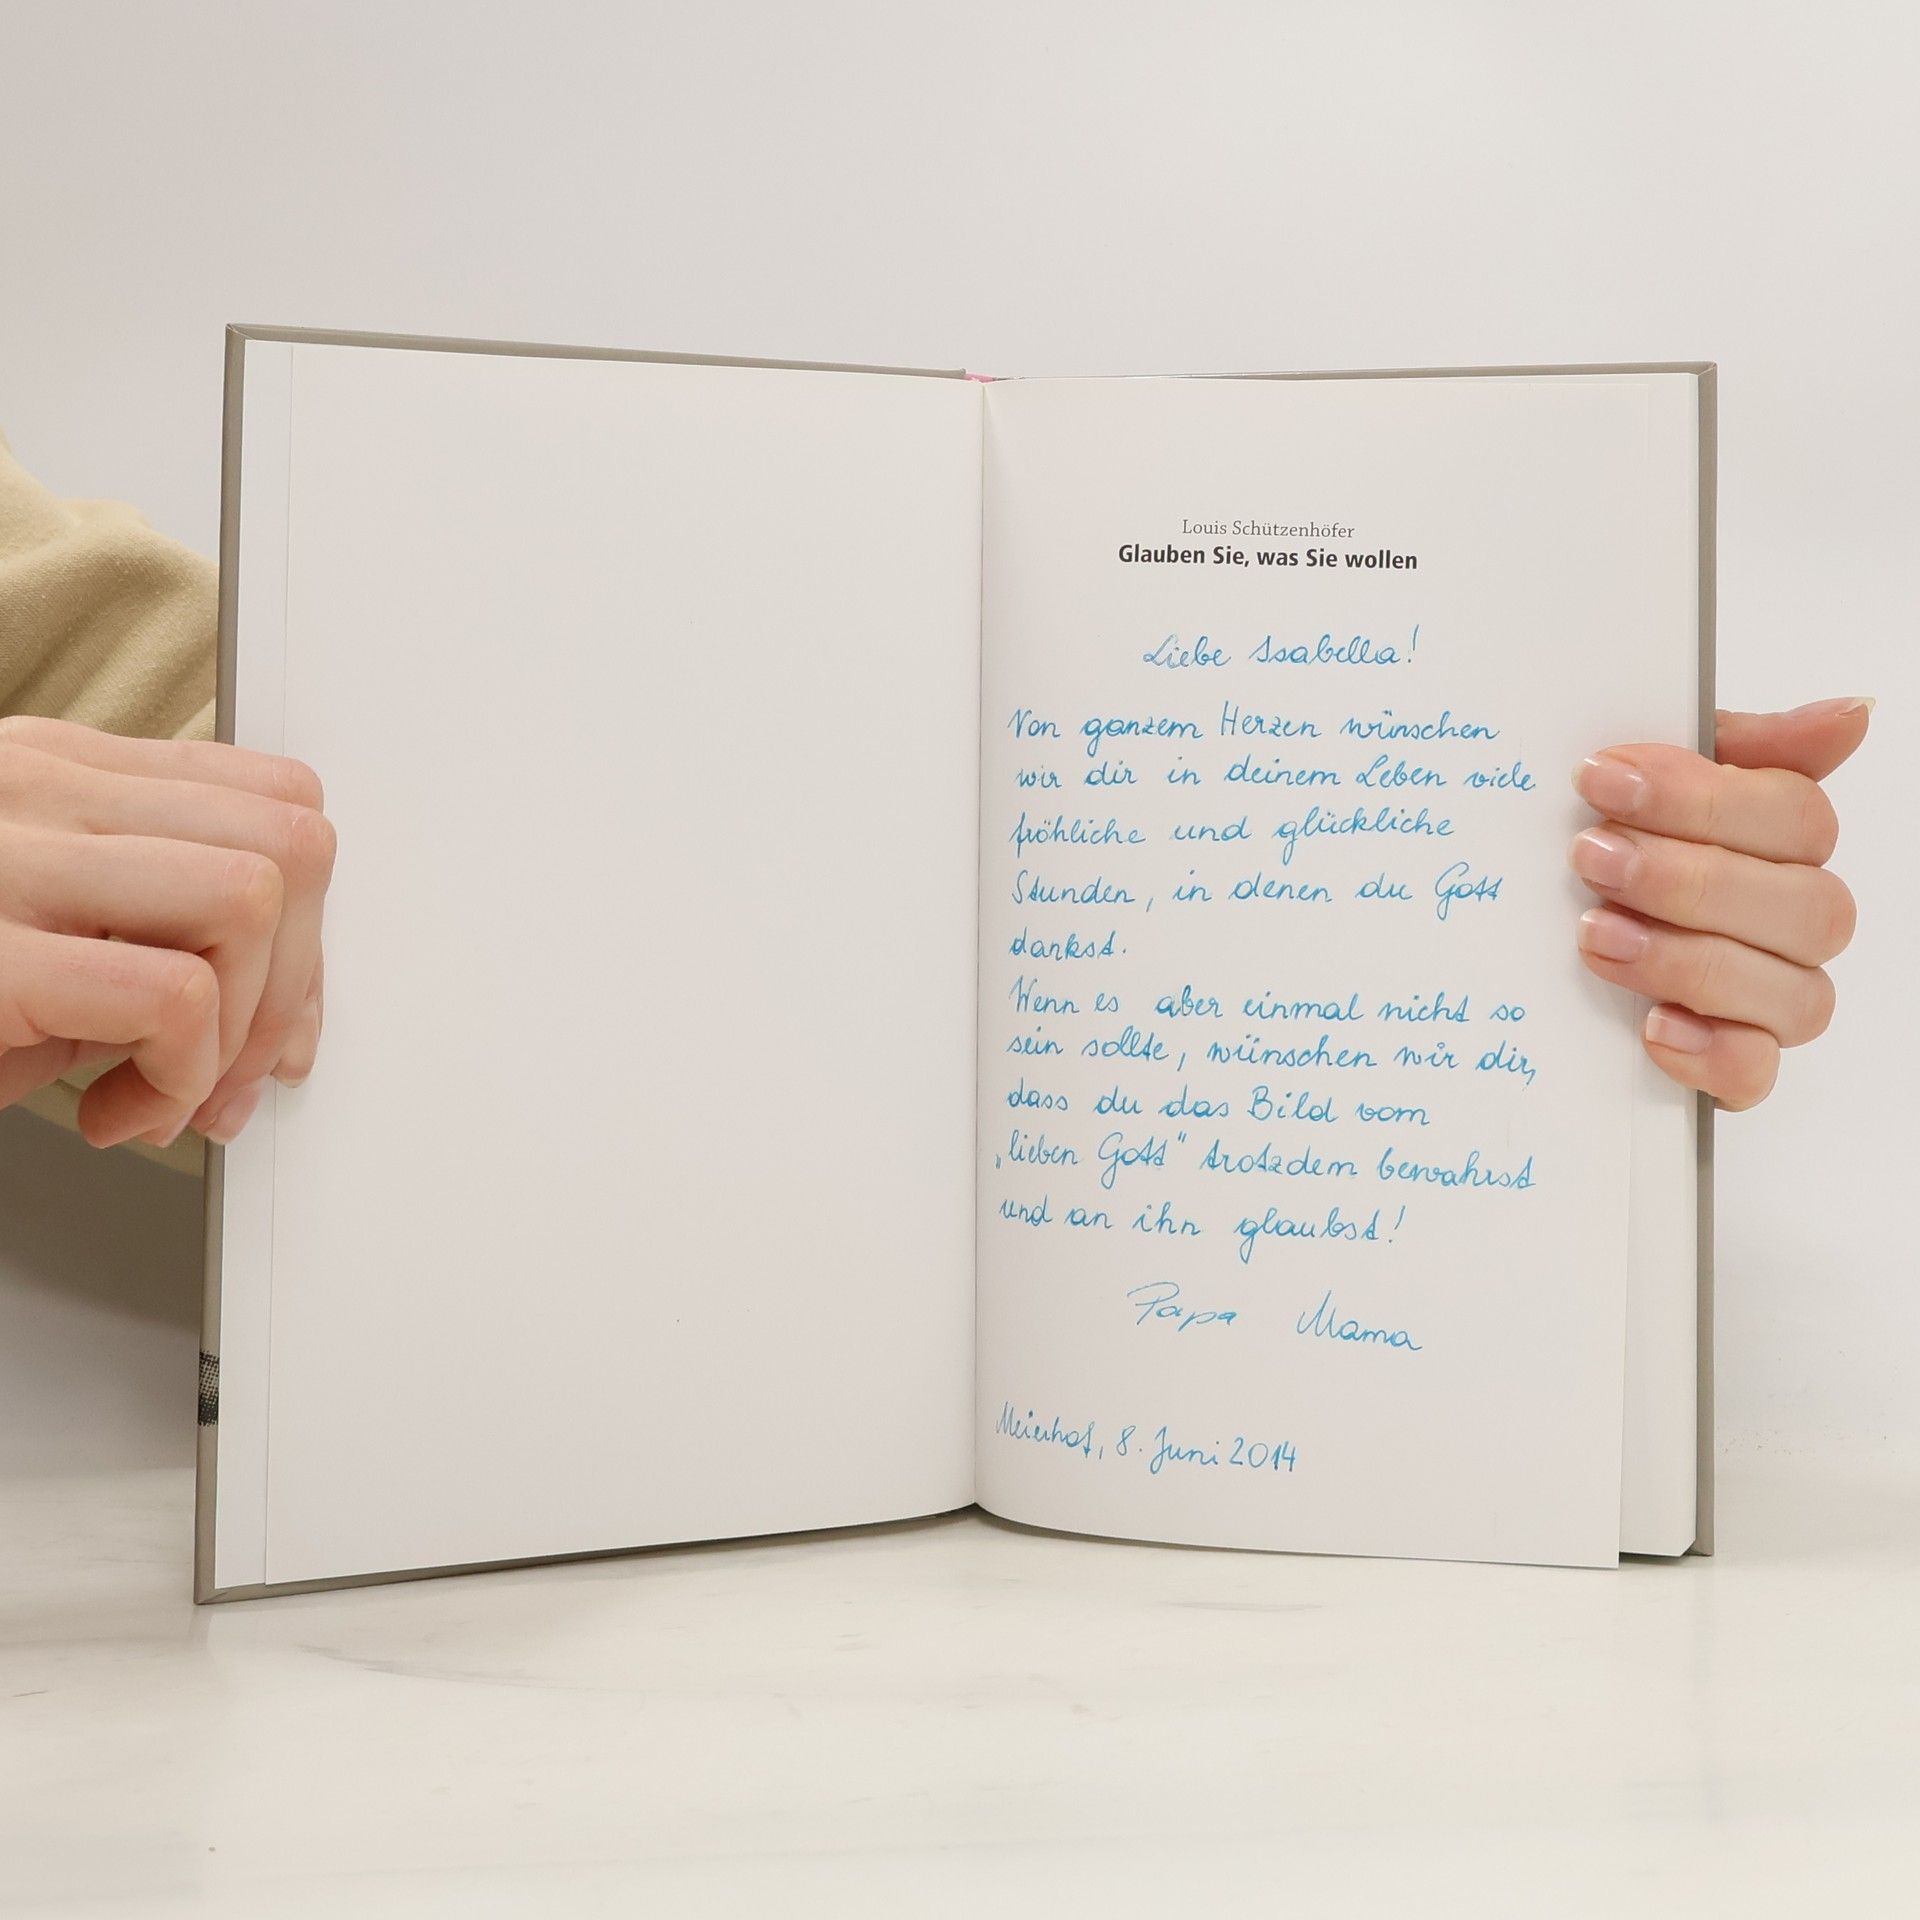 Louis Schützenhöfer
Glauben Sie, was Sie wollen
Liebe Isabella!
Von ganzem Herzen wünschen
wir dir in deinem Leben viele
fröhliche und glückliche
Stunden, in denen du Gott
dankst.
Wenn es aber einmal nicht so
sein sollte, wünschen wir dir,
dass du das Bild vom
„lieben Gott" trotzdem bewahrst
und an ihn glaubst!
Papa Mama
Meierhof, 8. Juni 2014